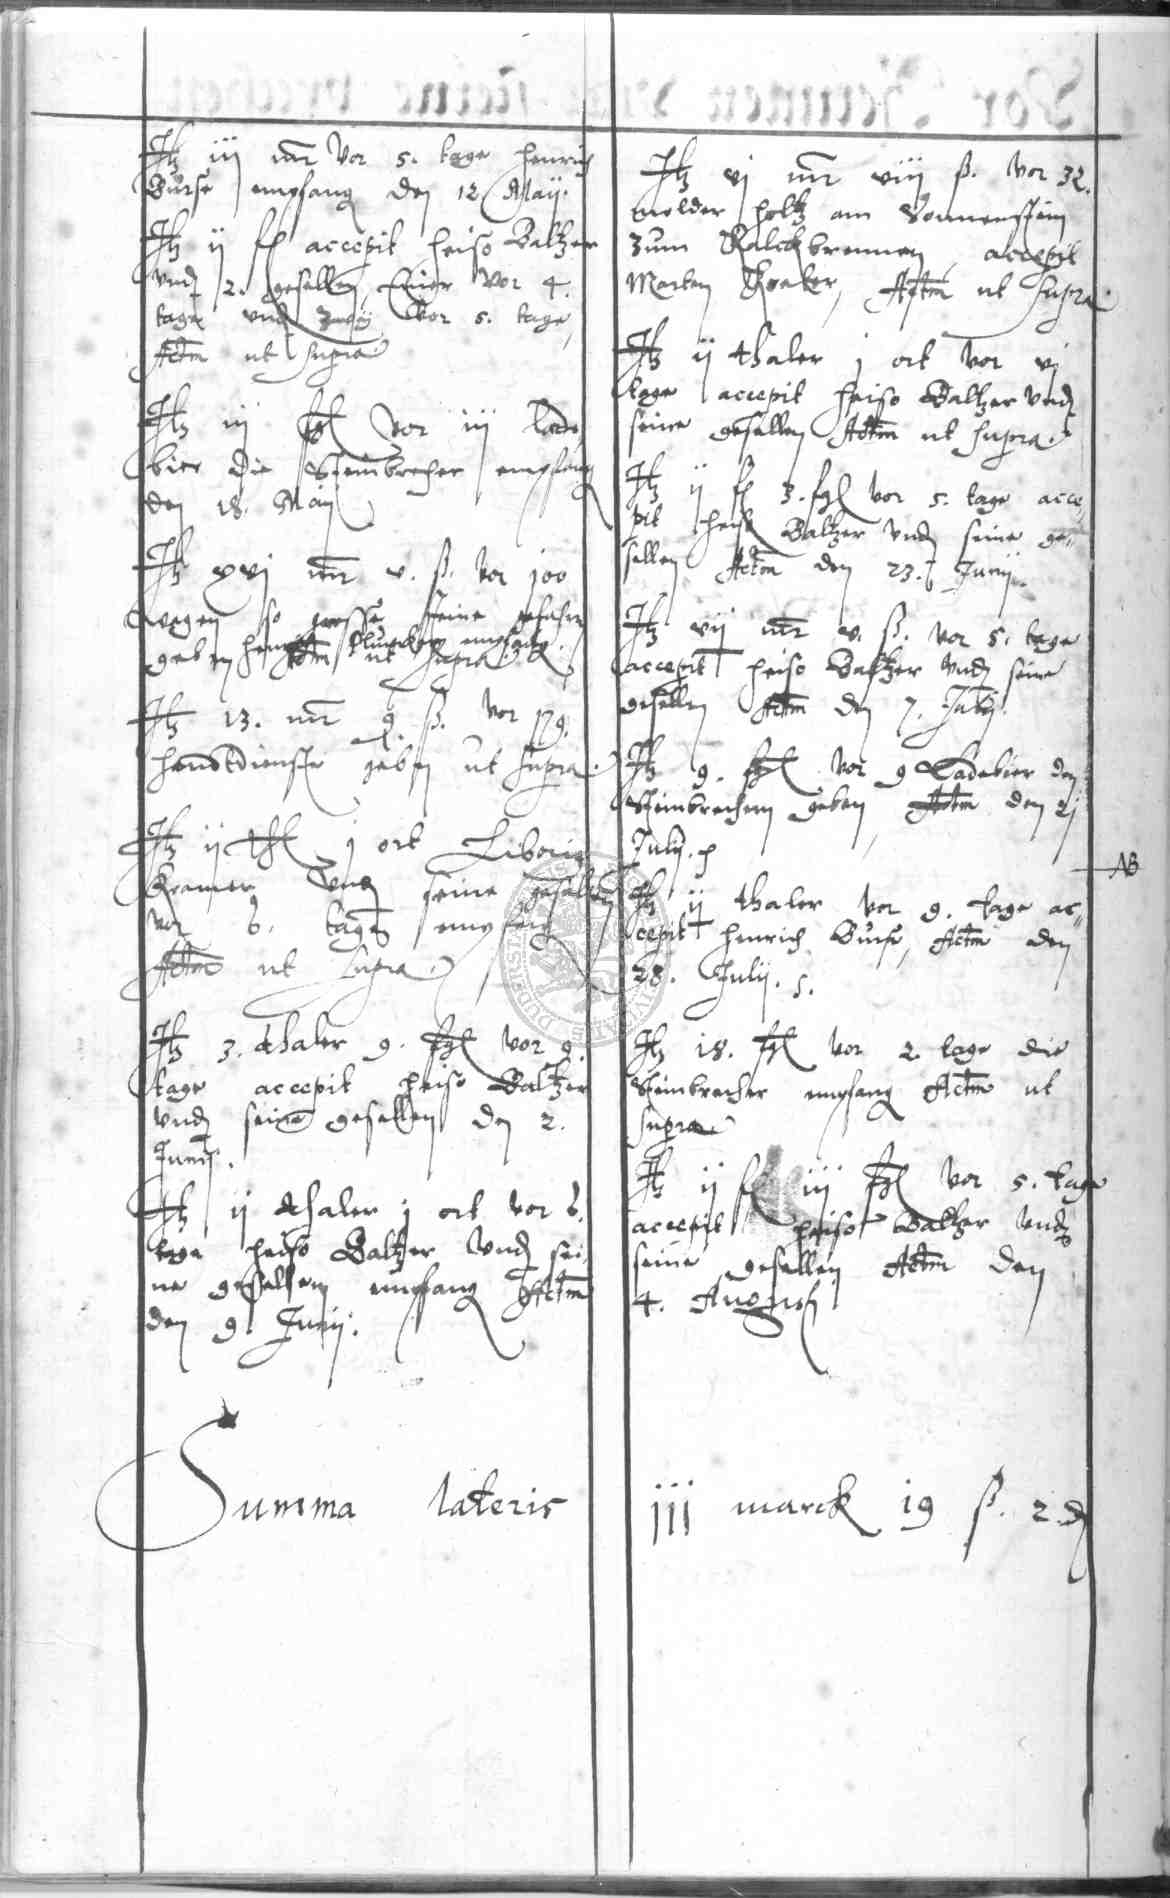 Itz iij mr vor 5. tage henrich
Burse empfang den 12 Maij.
Itz ij fl accepit heiso Baltzer
vnd 2. gesellen, Einer vor 4.
tage vnd zweij vor 5. tage,
Actm ut supra
Itz iij ßgl vor iij lade
bier die Steinbrecher empfang
den 18. Maij
Itz xvj mr v. ß. vor 100
wagen so grosse steine gefahrn
geben henrich empfang.
Actm ut supra
Itz 13. mr 9 ß. vor 179.
handtdienste geben ut supra.
Itz ij thl j ort Liborius
Kramer vnd seine gesellen
vor 6. tage empfang
Actm ut supra
Itz 3. thaler 9. ßgl vor 9.
tage accepit heiso Baltzer
vnd seine gesellen den 2.
Junij.
Itz ij thaler j ort vor 6.
tage heiso Baltzer vnd sei
ne gesellen empfang Actm
den 9. Junij.
Itz vj mr viij ß. vor 32.
molder holtz am Sonnenstein
zum Kalckbrennen, accepit
Marten, Actm ut supra.
Itz ij thaler j ort vor vj
tage accepit heiso Baltzer vnd
seine gesellen Actm ut supra.
Itz ij fl 3. ßgl vor 5. tage acce
pit heiso Baltzer vnd seine ge=
sellen Actm den 23. Junij.
Itz vij mr v. ß. vor 5. tage
accepit heiso Baltzer vnd seine
gesellen Actm den 7. Julij.
Itz 9. ßgl vor 9 Ladebier den
Steinbrechern geben, Actm den 21
Julij.
NB
Itz ij thaler vor 9. tage ac=
cepit henrich Burse, Actm den
28. Julij.
Itz 18. ßgl vor 2 tage die
Steinbrecher empfang Actm ut
supra
Itz ij fl iij ßgl vor 5. tage
accepit heiso Baltzer vnd
seine gesellen Actm den
4. Augusti
Summa lateris iij marck 19 ß. 2 d